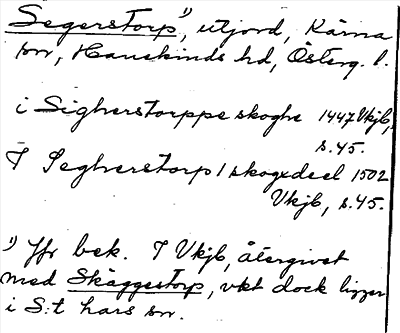 Segerstorp¹⁾, utjord, Kärna
sn, Hanekinds hd, Österg. l.
i Sigherstorppe skoghe 1447 Vkjb,
s. 45.
I Seghverstorp 1 skogxdeel 1502
Vkjb, s. 45.
¹⁾ Jfr bek. I Vkjb, återgivet
med Skäggestorp, vkt dock ligger
i S:t Lars sn.